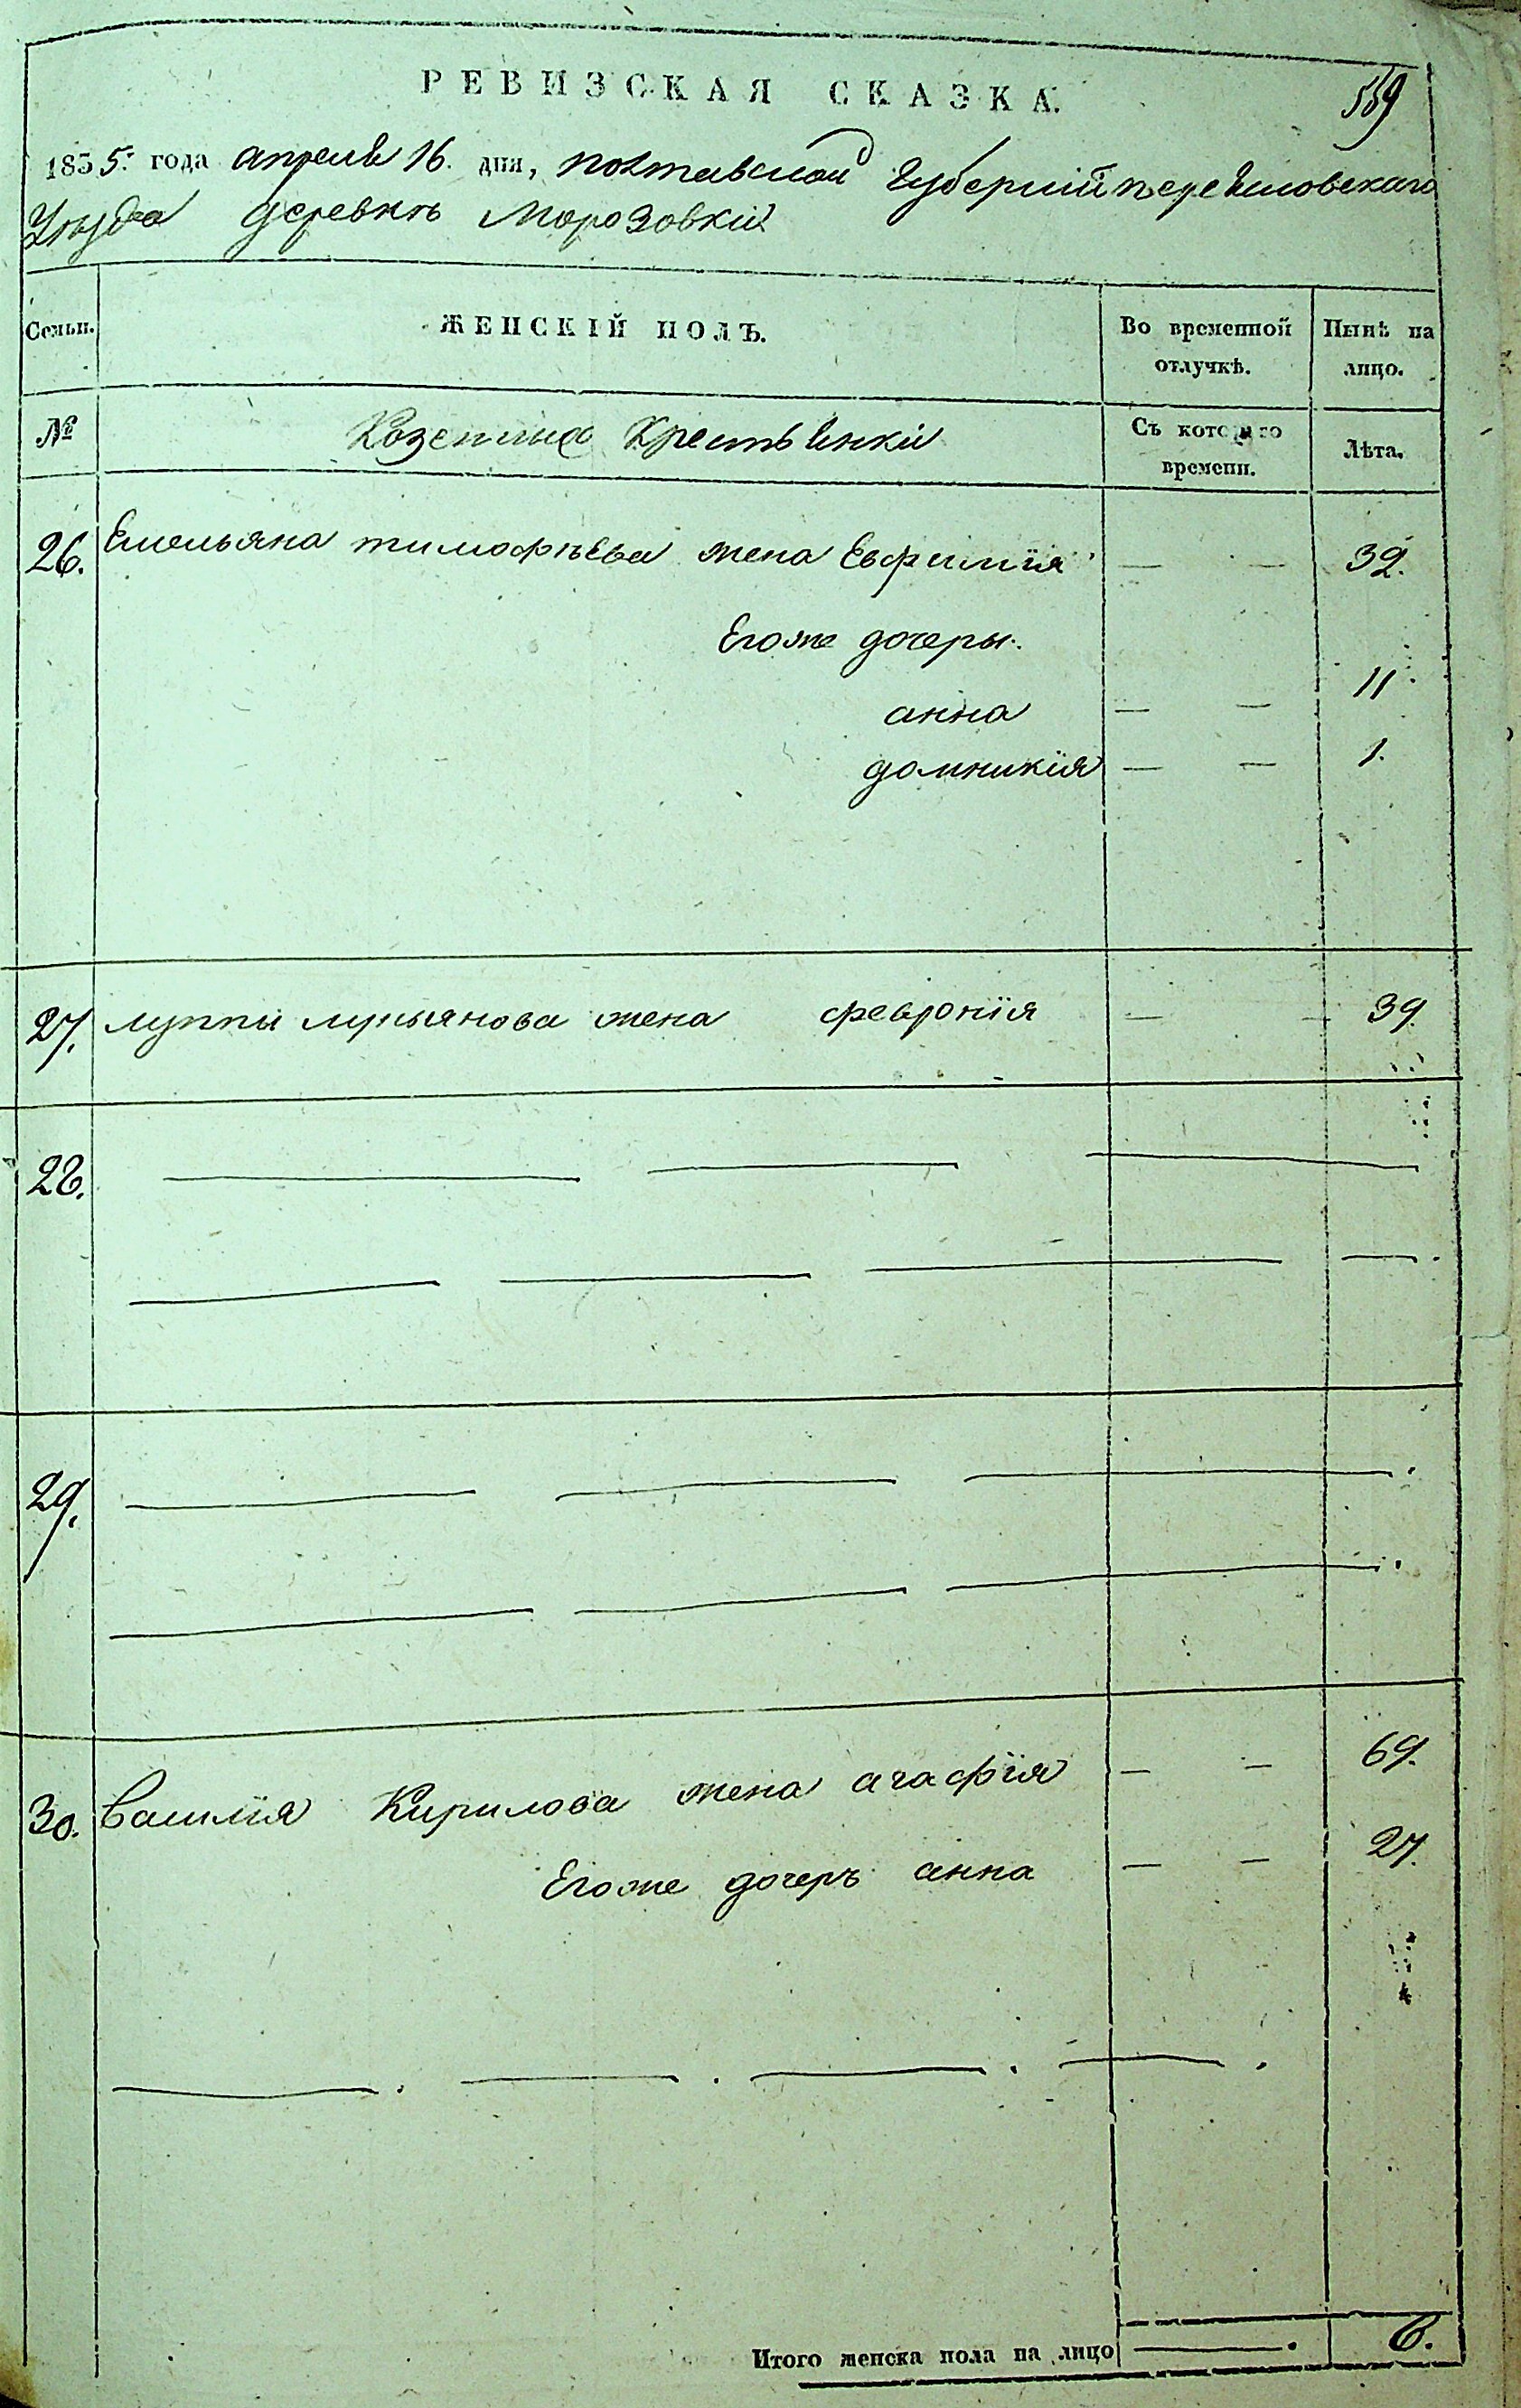 РЕВИЗСКАЯ СКАЗКА.
559
1835. года апреля 16. дня, полтавской Губерний переяславскаго
Уѣзда деревнѣ Морозовкѣ
Семьи. ЖЕНСКІЙ ПОЛЪ. Во временной отлучкѣ. Нынѣ на лицо.
№ Казенныя Крестьянки Съ которого времени. Лѣта.
26. Емельяна тимофѣева жена Евфимїя — — 32.
Егоже дочеры.
анна — — 11
домникїя — — 1.
27. луппы лукьянова жена феврония — — 39.
28.
29.
30. Василїя Кирилова жена агафїя — — 69.
Егоже дочеръ анна — — 27.
Итого женска пола на лицо — 6.